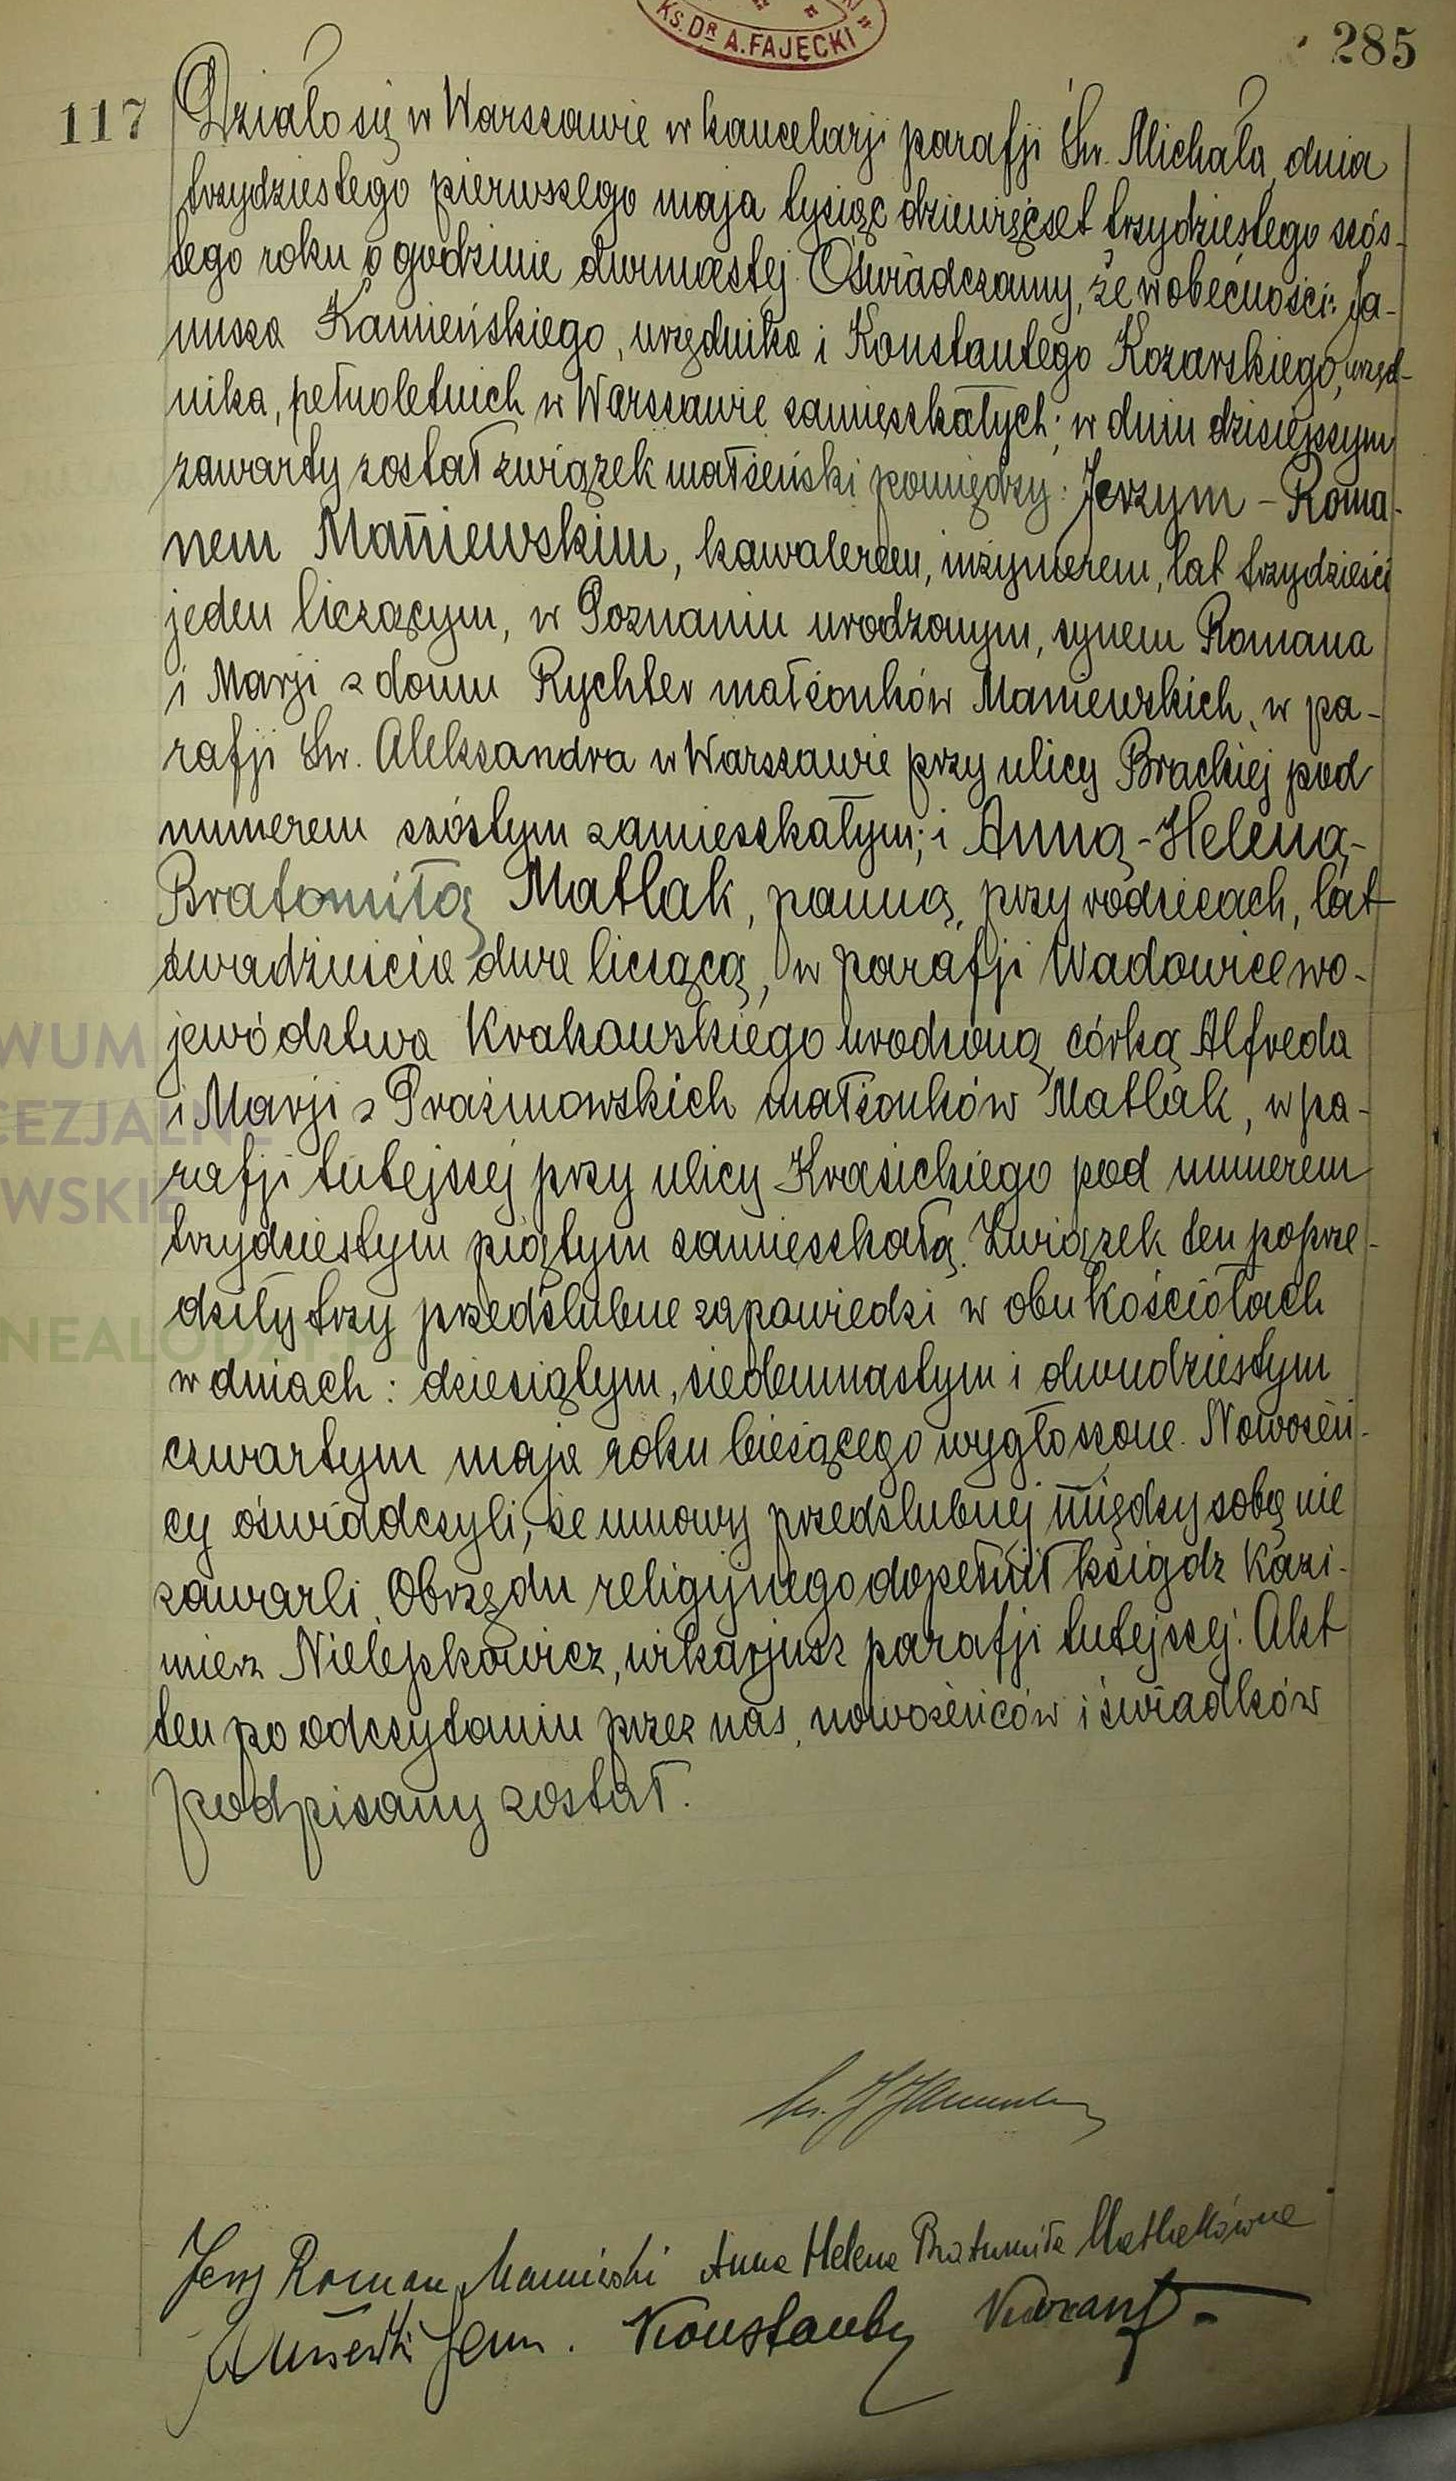 KS. DR A. FAJĘCKI
285
117
Działo się w Warszawie w kancelarji parafji Św. Michała, dnia
trzydziestego pierwszego maja tysiąc dziewięćset trzydziestego szós-
tego roku o godzinie dwunastej. Oświadczamy, że w obecności: Ja-
nusza Kamieńskiego, urzędnika i Konstantego Kozarskiego, urzęd-
nika, pełnoletnich w Warszawie zamieszkałych; w dniu dzisiejszym
zawarty został związek małżeński pomiędzy: Jerzym - Roma-
nem Maniewskim, kawalerem, inżynierem, lat trzydzieści
jeden liczącym, w Poznaniu urodzonym, synem Romana
i Marji z domu Rychter małżonków Maniewskich, w pa-
rafji Św. Aleksandra w Warszawie przy ulicy Brackiej pod
numerem szóstym zamieszkałym; i Anną-Heleną-
Bratomiłą Matlak, panną, przy rodzicach, lat
dwadzieścia dwa liczącą, w parafji Wadowice wo-
jewództwa Krakowskiego urodzoną, córką Alfreda
i Marji z Prażmowskich małżonków Matlak, w pa-
rafji tutejszej przy ulicy Krasickiego pod numerem
trzydziestym piątym zamieszkałą. Związek ten poprze-
dziły trzy przedślubne zapowiedzi w obu kościołach
w dniach: dziesiątym, siedemnastym i dwudziestym
czwartym maja roku bieżącego wygłoszone. Nowożeń-
cy oświadczyli, że umowy przedślubnej między sobą nie
zawarli. Obrzędu religijnego dopełnił ksiądz Kazi-
mierz Nielepkowicz, wikarjusz parafji tutejszej. Akt
ten po odczytaniu przez nas, nowożeńców i świadków
podpisany został.
Jerzy Roman Maniewski Anna Helena Bratumiła Matlakówna
Konstanty